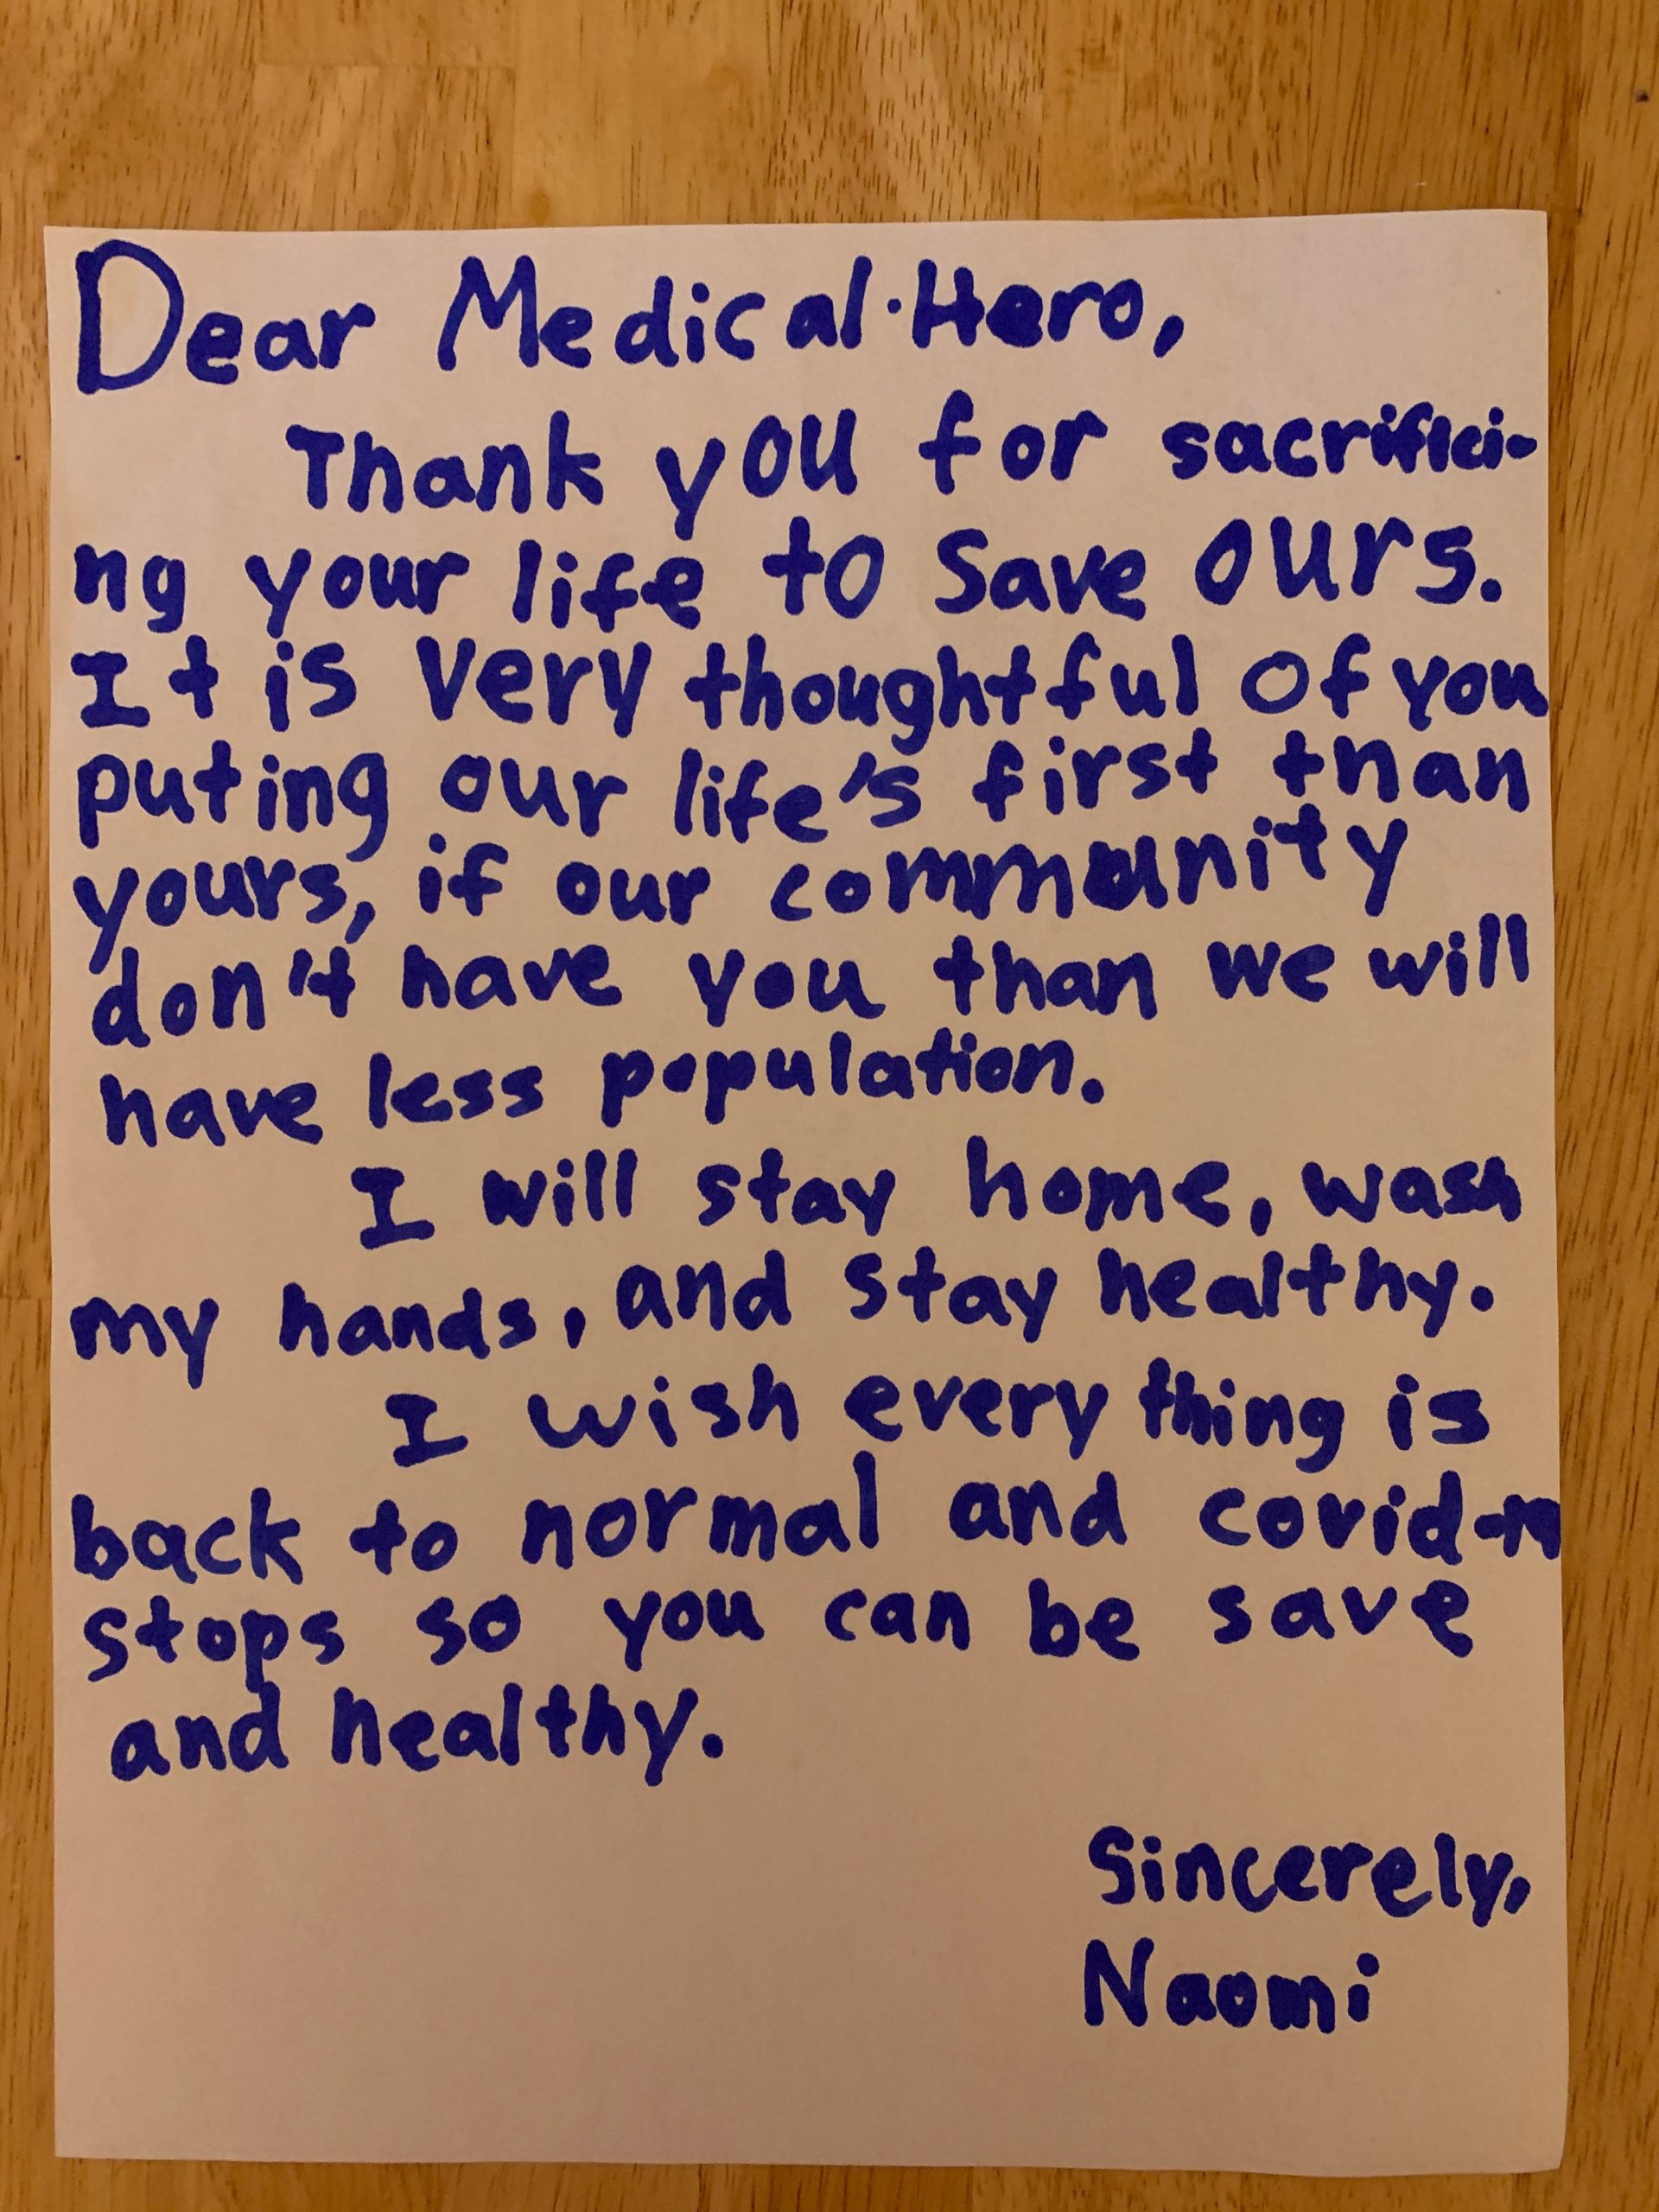 Dear Medical·Hero,
Thank you for sacrifici-
ng your life to Save ours.
It is very thoughtful of you
puting our life's first than
yours, if our community
don't have you than we will
have less population.
I will stay home, wash
my hands, and stay healthy.
I wish every thing is
back to normal and covid-19
stops so you can be save
and healthy.
Sincerely,
Naomi